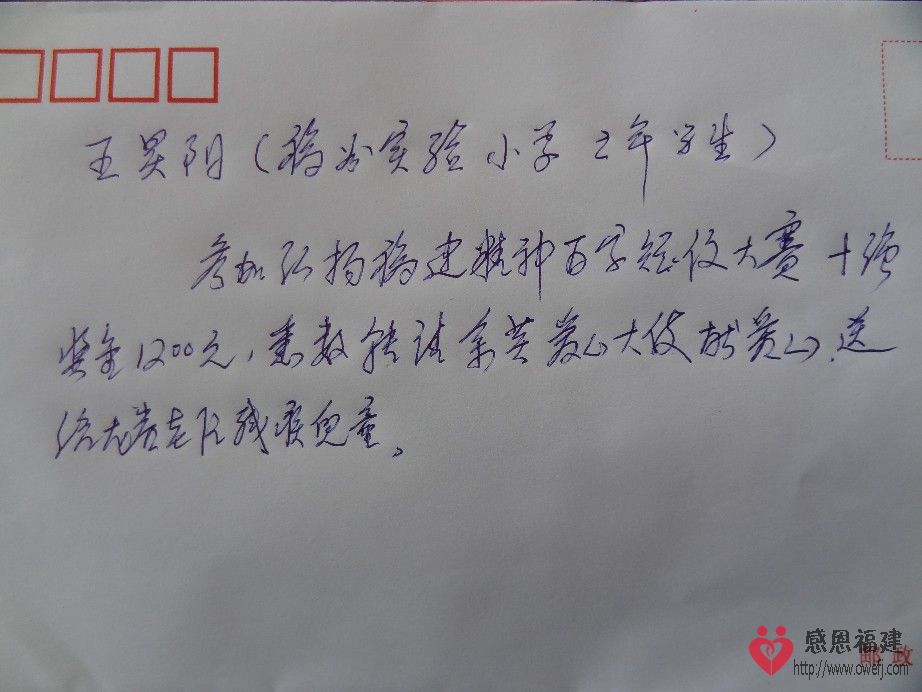 王昊阳（福州实验小学 二年学生）
参加弘扬福建精神百字短文大赛 十强
奖金1200元，悉数转请余英爱心大使献爱心，送
给尤贵老区残疾儿童。
感恩福建
邮政
http://www.owefj.com/